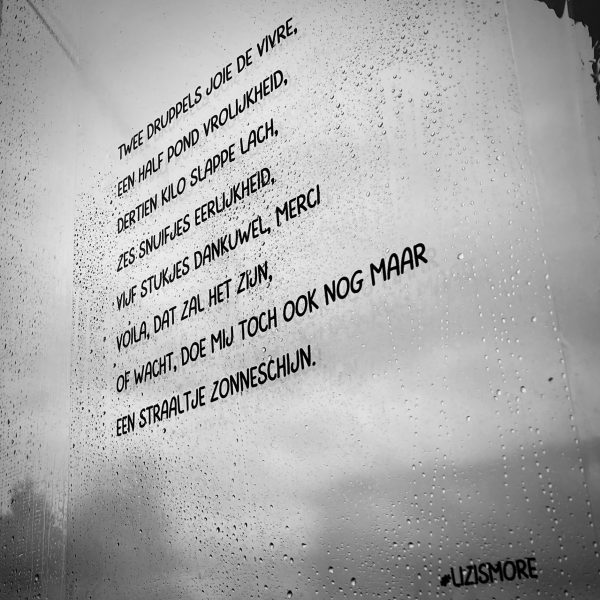 TWEE DRUPPELS JOIE DE VIVRE,
EEN HALF POND VROLIJKHEID,
DERTIEN KILO SLAPPE LACH,
ZES SNUIFJES EERLIJKHEID,
VIJF STUKJES DANKUWEL, MERCI
VOILA, DAT ZAL HET ZIJN,
OF WACHT, DOE MIJ TOCH OOK NOG MAAR
EEN STRAALTJE ZONNESCHIJN.
#UZISMORE